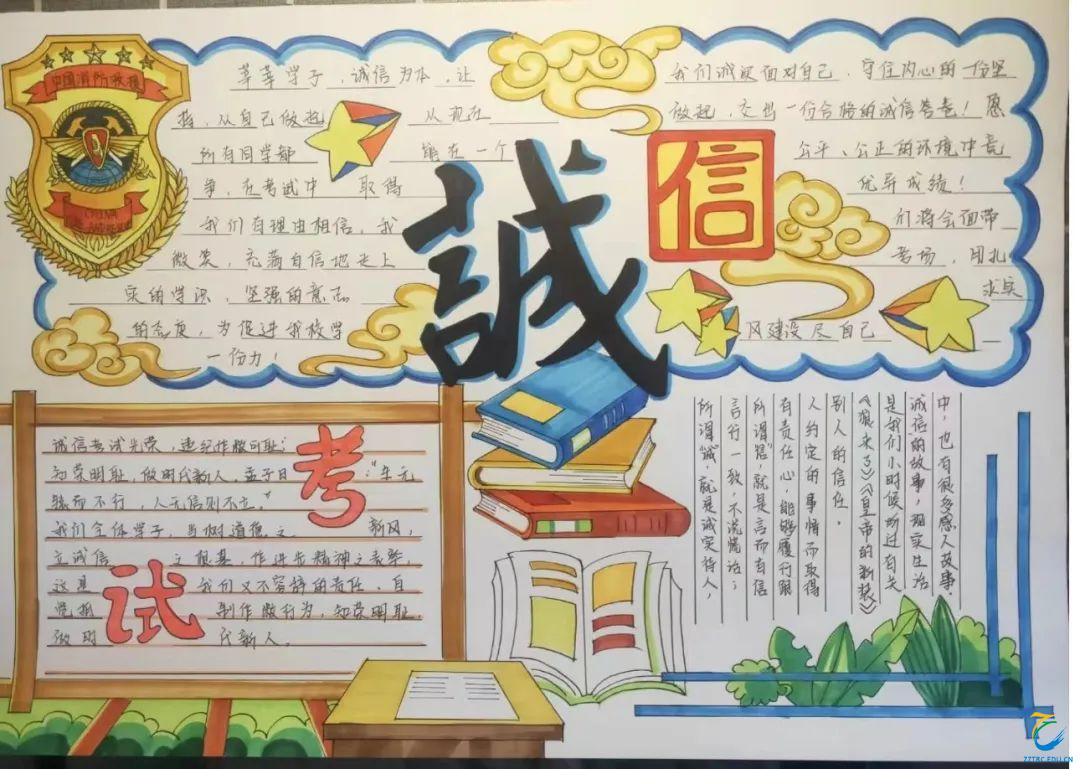 中国消防救援
CHINA
莘莘学子，诚信为本，让 我们诚实面对自己，守住内心的一份坚
持，从自己做起 从现在 做起，交出一份合格的诚信答卷！愿
所有同学都 能在一个 公平、公正的环境中竞
争，在考试中 取得 优异成绩！
我们有理由相信，我 们将会面带
微笑，充满自信地走上 考场，用扎
实的学识，坚强的意志 求实
的态度，为促进我校学 风建设尽自己
一份力！
誠
信
诚信考试光荣，违纪作弊可耻；
知荣明耻，做时代新人。孟子曰 ："车无
辕而不行，人无信则不立。"
我们全体学子，当树道德之 新风，
立诚信 之根基，作进步精神之表率，
这是 我们义不容辞的责任。自
觉抵 制作弊行为，知荣明耻
做时 代新人。
考
试
所谓"诚"，就是诚实待人，
言行一致，不说慌话；
所谓"信"，就是言而有信
有责任心，能够履行跟
人约定的事情而取得
别人的信任。
《狼来了》《皇帝的新装》
是我们小时候听过有关
诚信的故事，现实生活
中，也有很多感人故事。
ZZTRC.EDU.CN